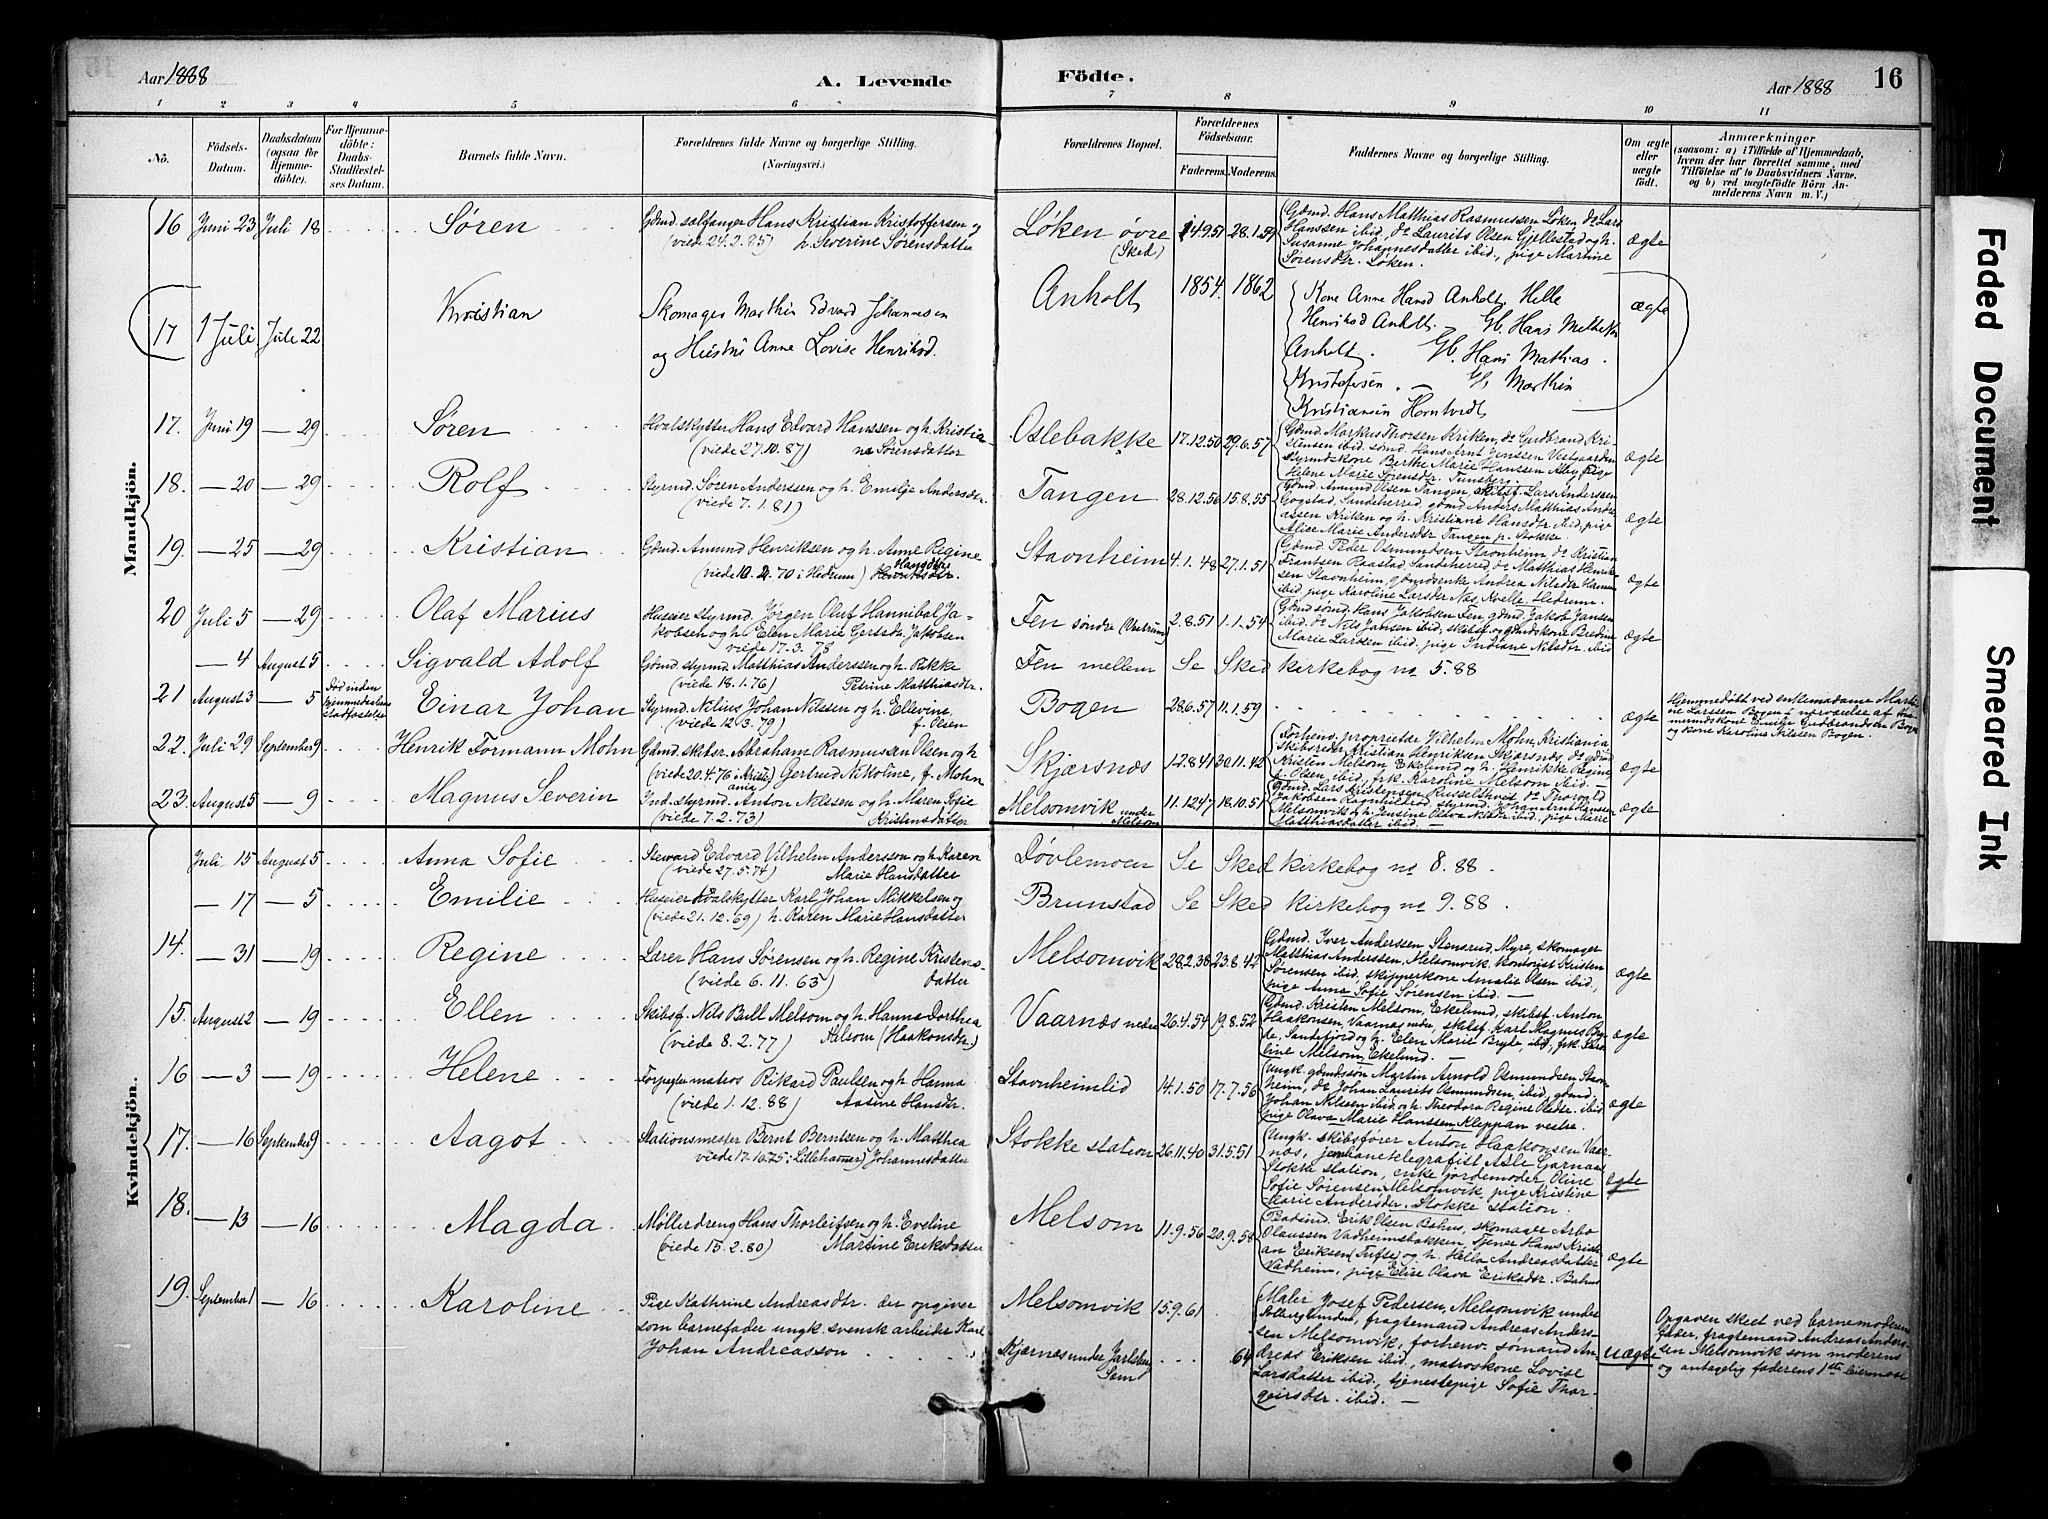 Aar 1888
A. Levende
Födte.
Aar 1888
16
1 2 3 4 5 6 7 8 9 10 11
No.
Födsels-Datum.
Daabsdatum (ogsaa for Hjemme-döbte).
For Hjemme-döbte: Daabs-Stadfæstel-ses Datum.
Barnets fulde Navn.
Forældrenes fulde Navne og borgerlige Stilling.
(Næringsvei.)
Forældrenes Bopæl.
Forældrenes Födselsaar.
Faderens. Moderens.
Faddernes Navne og borgerlige Stilling.
Om ægte eller uægte födt.
Anmærkninger
(saasom: a) i Tilfælde af Hjemmedaab, hvem der har forrettet samme, med Tilföielse af to Daabsvidners Navne, og b) ved uægtefödte Börn An-melderens Navn m. V.)
Mandkjön.
16 Juni 23 Juli 18 Søren Gdmd. sælfanger Hans Kristian Kristoffersen og
(viede 24.2.85) h. Severine Sørensdatter
Løken øvre (Sked) 28.1.59
Gdmd. Hans Matthias Rasmussen Løken, do Lars
Hanssen ibid. do Laurits Olsen Gjellestad og h.
Susanne Johannesdatter ibid., pige Martine
Sørensdtr. Løken.
ægte
17 1 Juli Juli 22 Kristian Skomager Marthin Edvard Johannesen
og Hustru Anne Lovise Henriksd.
Anholt 1854. 1862
Kone Anne Hansd Anholt. Helle
Henriksd Anholt. Gb. Hans
Anholt. Gb. Hans Mathias
Kristofersen. Marthin
Kristiansen Horntvedt
ægte
17. Juni 19 — 29 Søren Hvalskytter Hans Edvard Hanssen og h. Kristia
(viede 27.10.87) ne Sørensdatter
Oslebakke 17.12.50 29.6.57
Gdmd. Markus Thorsen Kriken, do Gudbrand Kri-
stensen ibid. sømd. Hans Arnt Jenssen Vestgaarden
styrmdskone Berthe Marie Hanssen Aby, pige
Helene Marie Sørensdtr. Tunsberg.
ægte
18. — 20 — 29 Rolf Styrmd. Søren Anderssen og h. Emilje Andersdtr.
(viede 7.1.81)
Tangen 28.12.56 15.8.55
Gdmd. Amund Olsen Tangen, skibsf. Lars Anderssen
Gogstad Sandeherred, gdmd. Anders Matthias Andre-
assen Kriken og h. Kristiane Hansdtr. ibid, pige
Alice Marie Andersdtr. Tangen p. Stokke.
ægte
19. — 25 — 29 Kristian Gdmd. Amund Henriksen og h. Anne Regine
(viede 10. 70 i Hedrum) Hansdtr.
Stavnheim 4.1.48 27.1.51
Gdmd. Peder Osmundsen Stavnheim, do Kristian
Frantsen Raastad Sandeherred, do Matthias Henrik-
sen Stavnheim, gdmdsenke Andrea Nilsdtr
ibid, pige Karoline Larsdtr Næs, Kvelle, Hedrum.
ægte
20 Juli 5 — 29 Olaf Marius Huseier styrmd. Jørgen Oluf Hannibal Ja-
kobsen og h. Elen Marie Gertsdtr. Jakobsen
viede 17.3.78
Fen søndre 2.8.51 1.1.54
Gdmd sønd. Hans Jakobsen Fen, gdmd. Jakob Jansen
ibid. do Nils Jansen ibid, skibsf. og gdmdskone Bredine
Marie Larssen ibid. pige Indiane Nilsdtr. ibid
ægte
— 4 August 5 Sigvald Adolf Gdmd. styrmd. Matthias Anderssen og h. Rikke
(viede 18.1.76) Petrine Matthiasdtr.
Fen mellem Se Sked kirkebog no 5.88
21 August 3 — 5 Død inden hjemmedaabens stadfæstelse Einar Johan Styrmd. Nilius Johan Nilssen og h. Ellevine
(viede 12.3.79) f. Olsen
Bogen 28.6.57 11.1.59
ægte
Hjemmedøbt ved enkemadame Marti-
ne Larssen Bogen i nærværelse af tøm-
mermdskone Emilje Gudbrandsen Bogen
og kone Karoline Nilssen Bogen.
22. Juli 29 September 9 Henrik Formann Mohn Gdmd skibsr. Abraham Rasmussen Olsen og h.
(viede 20.4.76 i Kristiania) Gertrud Nikoline, f. Mohn
Skjærsnæs 12.8.41 30.11.42
Forhenv. proprietær Vilhelm Mohn, Kristiania
Skibsreder Kristian Henriksen Skjærsnæs, do gdmd
Kristen Melsom Ekelund og h. Henrikke Regine
f. Olsen ibid., frk. Karoline Melsom ibid. —
ægte
23. August 5 — 9 Magnus Severin Ind. styrmd. Anton Nilssen og h. Maren Sofie
(viede 7.2.73) Kristensdatter
Melsomvik under Melsom 11.12.47 18.10.51
Gdmd. Lars Kristensen Russelthvedt, do Thorvald
Jakobsen Ragnhildsrød, styrmd. Johan Arnt Hanssen
Melsomvik og h. Jensine Olava Nilsdtr ibid., pige Marie
Matthiasdatter ibid. —
ægte
Kvindekjön.
Juli 15 August 5 Anna Sofie Steward Edvard Vilhelm Andersson og h. Karen
(viede 27.5.74) Marie Hansdatter
Døvlemoen Se Sked kirkebog no 8.88.
— 17 — 5 Emilie Huseier hvalskytter Karl Johan Mikkelsen og
(viede 21.12.69) h. Karen Marie Hansdatter
Brunstad Se Sked kirkebog no 9.88.
14. — 31 — 19 Regine Lærer Hans Sørensen og h. Regine Kristens-
(viede 6.11.63) datter
Melsomvik 28.2.38 23.8.42
Gdmd. Iver Anderssen Stensrud, Myre, skomager
Matthias Anderssen, Melsomvik, kontorist Kristen
Sørensen ibid., skipperkone Amalie Olsen ibid.,
pige Anna Sofie Sørensen ibid. —
ægte
15. August 2 — 19 Ellen Skibsf. Nils Bull Melsom og h. Hanna Dorthea
(viede 8.2.77) Melsom (Haakonsdtr.)
Vaarnæs nedre 26.4.54 19.8.52
Gdmd. Kristen Melsom, Ekelund, skibsf. Anton
Haakonsen, Vaarnæs nedre, skibsf. Karl Magnus Bry-
de, Sandefjord og h. Elen Marie Bryde, ibid., frk. Karo-
line Melsom, Ekelund. —
ægte
16 — 3 — 19 Helene Forpagter matros Rikard Paulsen og h. Hanna
(viede 1.12.88) Aasine Hansdtr.
Stavnheimlid 14.1.50 17.7.56
Ungk. gdmdssøn Martin Arnold Osmundsen Stavn-
heim, do Johan Laurits Osmundsen, ibid., gdmd.
Johan Nilssen ibid. og h. Theodora Regine Olsdtr. ibid
pige Olava Marie Hanssen Kleppan vestre.
ægte
17. — 16 September 9 Aagot Stationsmester Bernt Berntsen og h. Matthea
viede 17.10.75 i Lillehamer) Johannesdatter
Stokke station 26.11.40 31.5.51
Ungk. skibsfører Anton Haakonsen Vaar-
næs, jernbanetelegrafist Asle Garnaas
Stokke station, enke jordemoder Oline
Sofie Sørensen, Melsomvik, pige Kristine
Marie Andersdtr, Stokke station.
ægte
18. — 13 — 16 Magda Møllerdreng Hans Thorleifsen og h. Eveline
(viede 15.2.80) Martine Eriksdatter
Melsom 11.9.56 20.9.58
Erik Olsen Bahus, skomager Arbo
Olaussen Vadheimsbakken, Tjener Hans Kristi-
an Eriksen (Tufte) og h. Hella Andreasdatter
Vadheim, pige Elise Olava Eriksdtr. Bahus
ægte
19. September 1 — 16 Karoline Pige Kathrine Andreasdtr. der opgiver
som barnefader ungk. svensk arbeider Karl
Johan Andreasson
Melsomvik 15.9.61
Kjærnæs under Jarlsberg Sem 64
Maler Josef Pedersen, Melsomvik under
Solbergbunden, fragtemand Andreas Anders-
sen Melsomvik, forhenv. sømand An-
dreas Eriksen ibid., matroskone Lovise
Larsdatter ibid., tjenestepige Sofie Thor-
geirsdtr. ibid. —
uægte
Opgaven skeet ved barnemoderens
fader, fragtemand Andreas Anders-
sen Melsomvik som moderens
og antagelig faderens 1ste leiermaal
Faded Document
Smeared Ink